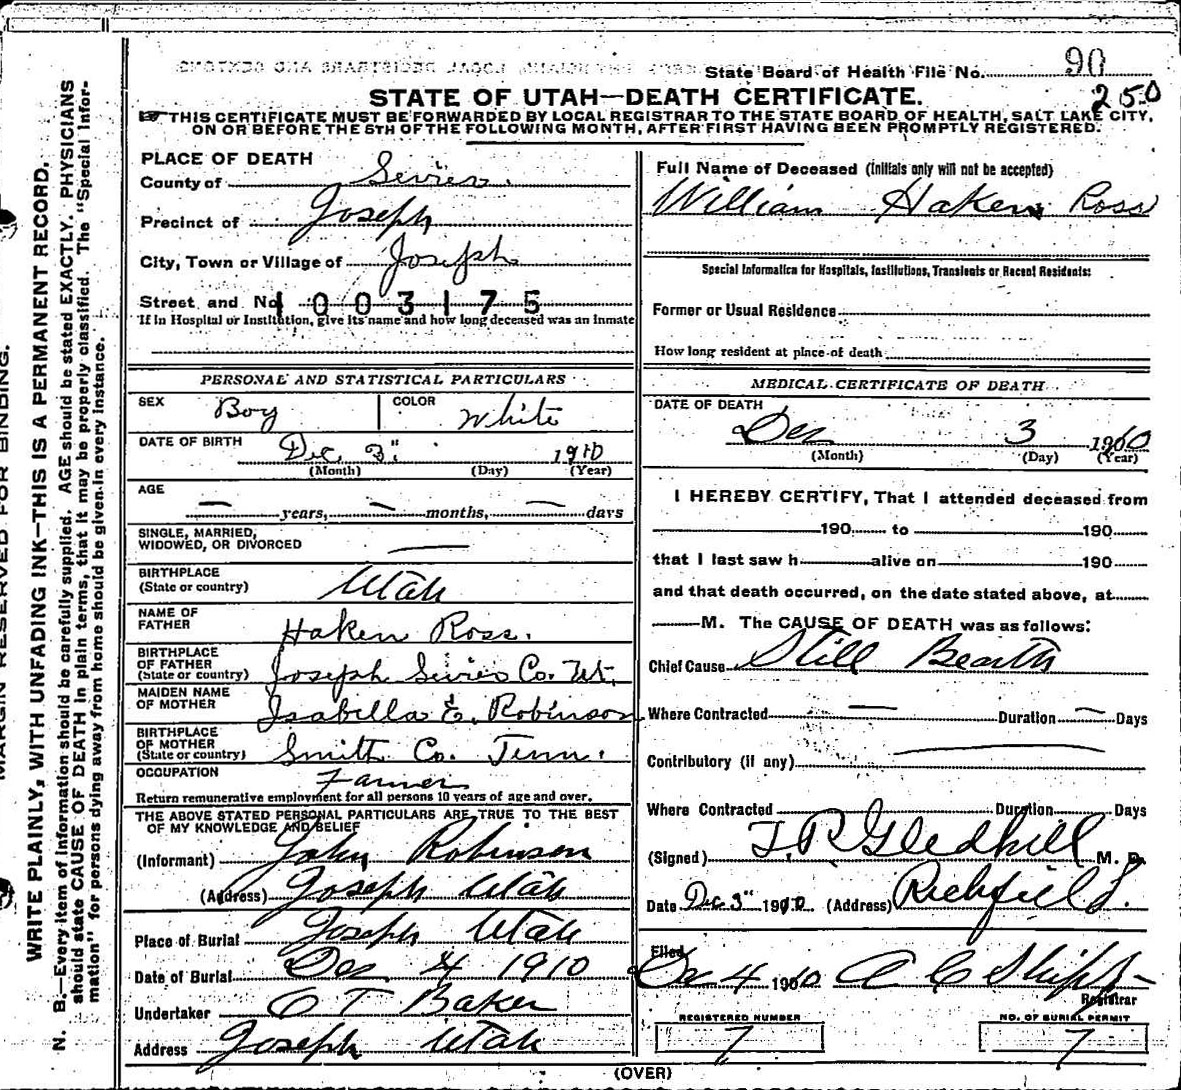 State Board of Health File No. 90
250
STATE OF UTAH—DEATH CERTIFICATE.
THIS CERTIFICATE MUST BE FORWARDED BY LOCAL REGISTRAR TO THE STATE BOARD OF HEALTH, SALT LAKE CITY,
ON OR BEFORE THE 5TH OF THE FOLLOWING MONTH, AFTER FIRST HAVING BEEN PROMPTLY REGISTERED.
MARGIN RESERVED FOR BINDING.
WRITE PLAINLY, WITH UNFADING INK—THIS IS A PERMANENT RECORD.
N. B.—Every item of Information should be carefully supplied. AGE should be stated EXACTLY. PHYSICIANS
should state CAUSE OF DEATH in plain terms, that it may be properly classified. The "Special Infor-
mation" for persons dying away from home should be given in every instance.
PLACE OF DEATH
County of Sevier.
Precinct of Joseph
City, Town or Village of Joseph
Street and No. 1003175
If in Hospital or Institution, give its name and how long deceased was an inmate
PERSONAL AND STATISTICAL PARTICULARS
SEX Boy COLOR White
DATE OF BIRTH
Dec 3" 1910
(Month) (Day) (Year)
AGE
— years, — months, — days
SINGLE, MARRIED,
WIDOWED, OR DIVORCED —
BIRTHPLACE
(State or country) Utah
NAME OF
FATHER Haken Ross.
BIRTHPLACE
OF FATHER
(State or country) Joseph Sevier Co. Ut.
MAIDEN NAME
OF MOTHER Isabella E. Robinson
BIRTHPLACE
OF MOTHER
(State or country) Smith Co. Tenn.
OCCUPATION Farmer
Return remunerative employment for all persons 10 years of age and over.
THE ABOVE STATED PERSONAL PARTICULARS ARE TRUE TO THE BEST
OF MY KNOWLEDGE AND BELIEF
(Informant) John Robinson
(Address) Joseph Utah
Place of Burial Joseph Utah
Date of Burial Dec 4 1910
Undertaker O T Baker
Address Joseph Utah
Full Name of Deceased (Initials only will not be accepted)
William Haken Ross
Special Information for Hospitals, Institutions, Transients or Recent Residents:
Former or Usual Residence
How long resident at place of death
MEDICAL CERTIFICATE OF DEATH
DATE OF DEATH
Dec 3 1910
(Month) (Day) (Year)
I HEREBY CERTIFY, That I attended deceased from
190 to 190
that I last saw h alive on 190
and that death occurred, on the date stated above, at
M. The CAUSE OF DEATH was as follows:
Chief Cause Still Bearth
Where Contracted — Duration — Days
Contributory (if any) —
Where Contracted Duration Days
(Signed) T. R. Gledhill M. D.
Date Dec 3" 1910 (Address) Richfield.
Filed
Dec 4 1910 A C Shipp
Registrar
REGISTERED NUMBER NO. OF BURIAL PERMIT
7 7
(OVER)